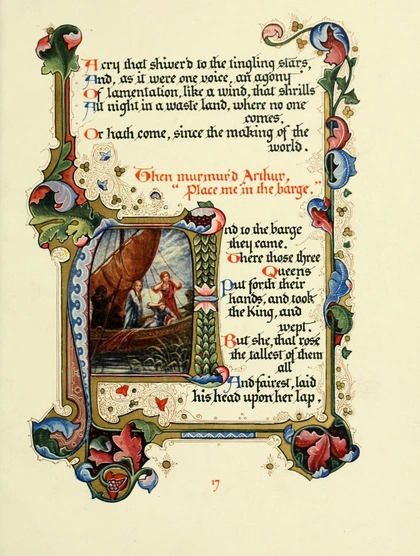 A cry that shiver'd to the tingling stars,
And, as it were one voice, an agony
Of lamentation, like a wind, that shrills
All night in a waste land, where no one
comes,
Or hath come, since the making of the
world.
Then murmur'd Arthur,
"Place me in the barge."
And to the barge
they came.
There those three
Queens
Put forth their
hands, and took
the King, and
wept.
But she, that rose
the tallest of them
all
And fairest, laid
his head upon her lap,
17